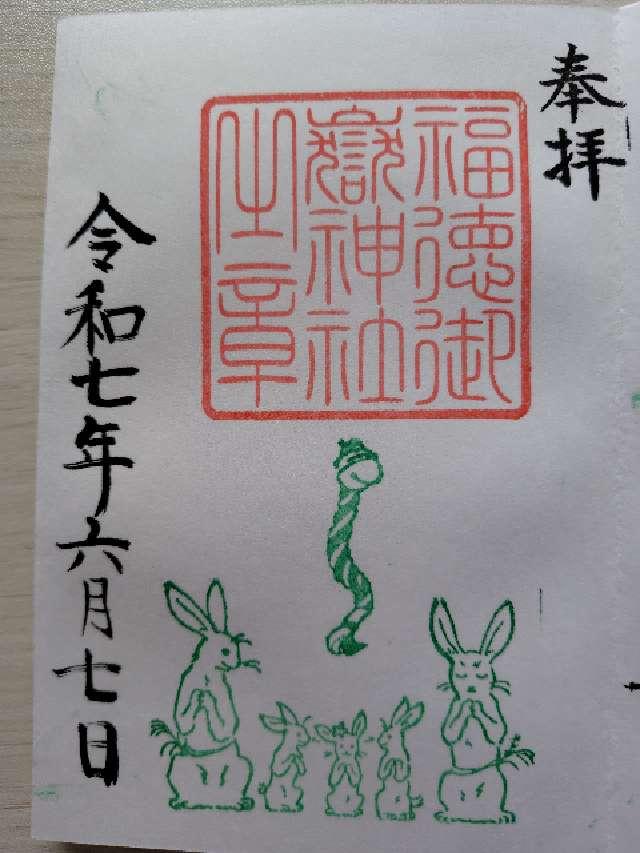 奉拝
福徳御
嶽神社
之章
令和七年六月七日